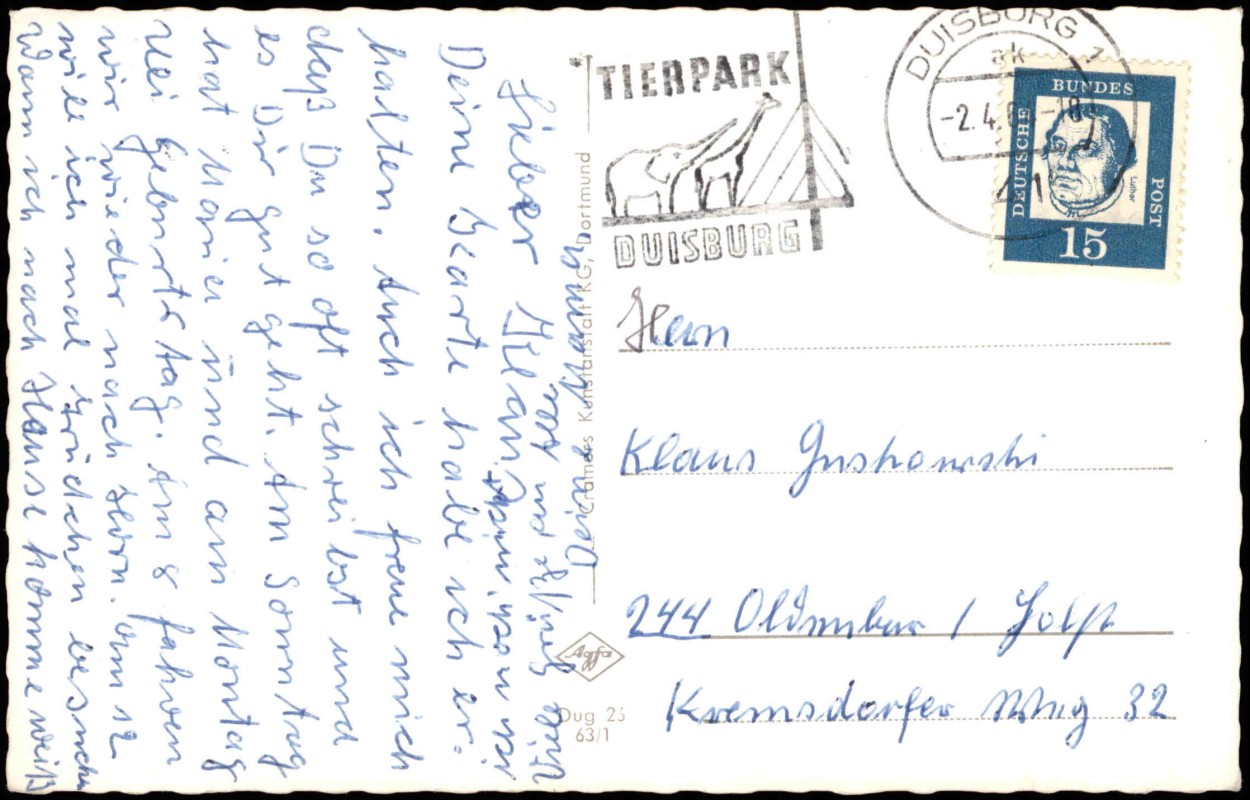 Lieber Klaus,
Deine Karte habe ich er-
halten. Auch ich freue mich
daß Du so oft schreibst und
es Dir gut geht. Am Sonntag
hat Maria und am Montag
Uli Geburtstag. Am 8 fahren
wir wieder nach Horn. Am 12
will ich mal Brüdchen besuchen
Wann ich nach Hause komme weiß
ich noch nicht.
Viele Grüße
Dein
Cramers Kunstanstalt KG, Dortmund
Agfa
Dug 25
63/1
TIERPARK
DUISBURG
DUISBURG 1
ak
-2.4. -18
DEUTSCHE BUNDES POST
Luther
15
Herrn
Klaus Guskowski
244 Oldenburg / Holst
Kremsdorfer Weg 32